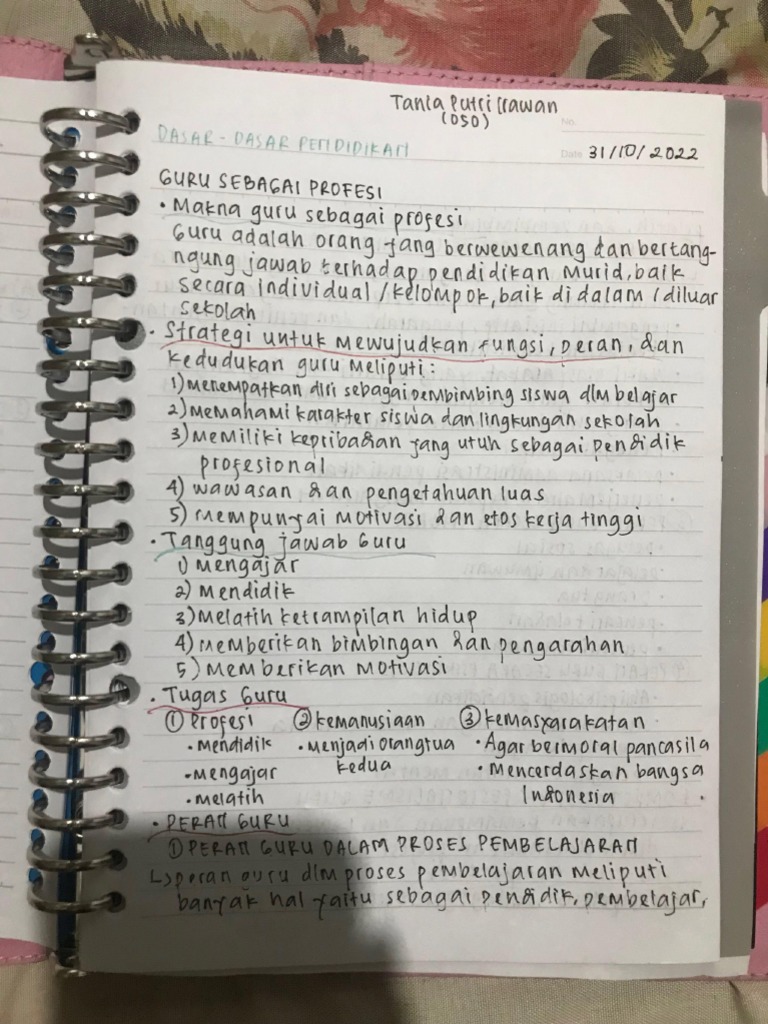 Tania Putri Irawan
(050)
No.
DASAR - DASAR PENDIDIKAN
Date 31/10/2022
GURU SEBAGAI PROFESI
• Makna guru sebagai profesi
Guru adalah orang yang berwewenang dan bertang-
ngung jawab terhadap pendidikan murid, baik
secara individual /kelompok, baik di dalam / diluar
sekolah
• Strategi untuk mewujudkan fungsi, peran, dan
kedudukan guru meliputi :
1) menempatkan diri sebagai pembimbing siswa dlm belajar
2) memahami karakter siswa dan lingkungan sekolah
3) memiliki kepribadian yang utuh sebagai pendidik
profesional
4) wawasan dan pengetahuan luas
5) mempunyai motivasi dan etos kerja tinggi
• Tanggung jawab Guru
1) mengajar
2) Mendidik
3) melatih ketrampilan hidup
4) memberikan bimbingan dan pengarahan
5) memberikan motivasi
• Tugas Guru
① Profesi ② kemanusiaan ③ kemasyarakatan
• Mendidik • Menjadi orangtua • Agar bermoral pancasila
• Mengajar kedua • Mencerdaskan bangsa
• Melatih Indonesia .
• PERAN GURU
① PERAN GURU DALAM PROSES PEMBELAJARAN
↳ peran guru dlm proses pembelajaran meliputi
banyak hal yaitu sebagai pendidik, pembelajar,